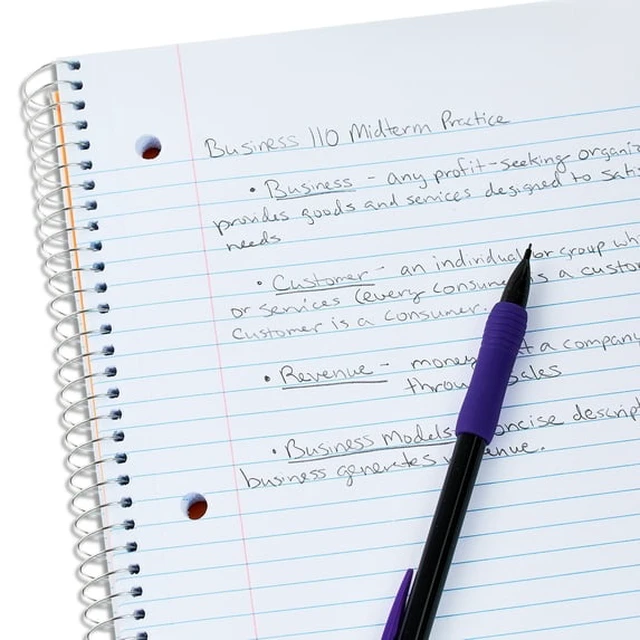 Business 110 Midterm Practice
• Business - any profit-seeking
provides goods and services designed to
needs
• Customer - an individual or group
or services (every is a
Customer is a consumer.
• Revenue - money a company
sales
• Business Models
business generates